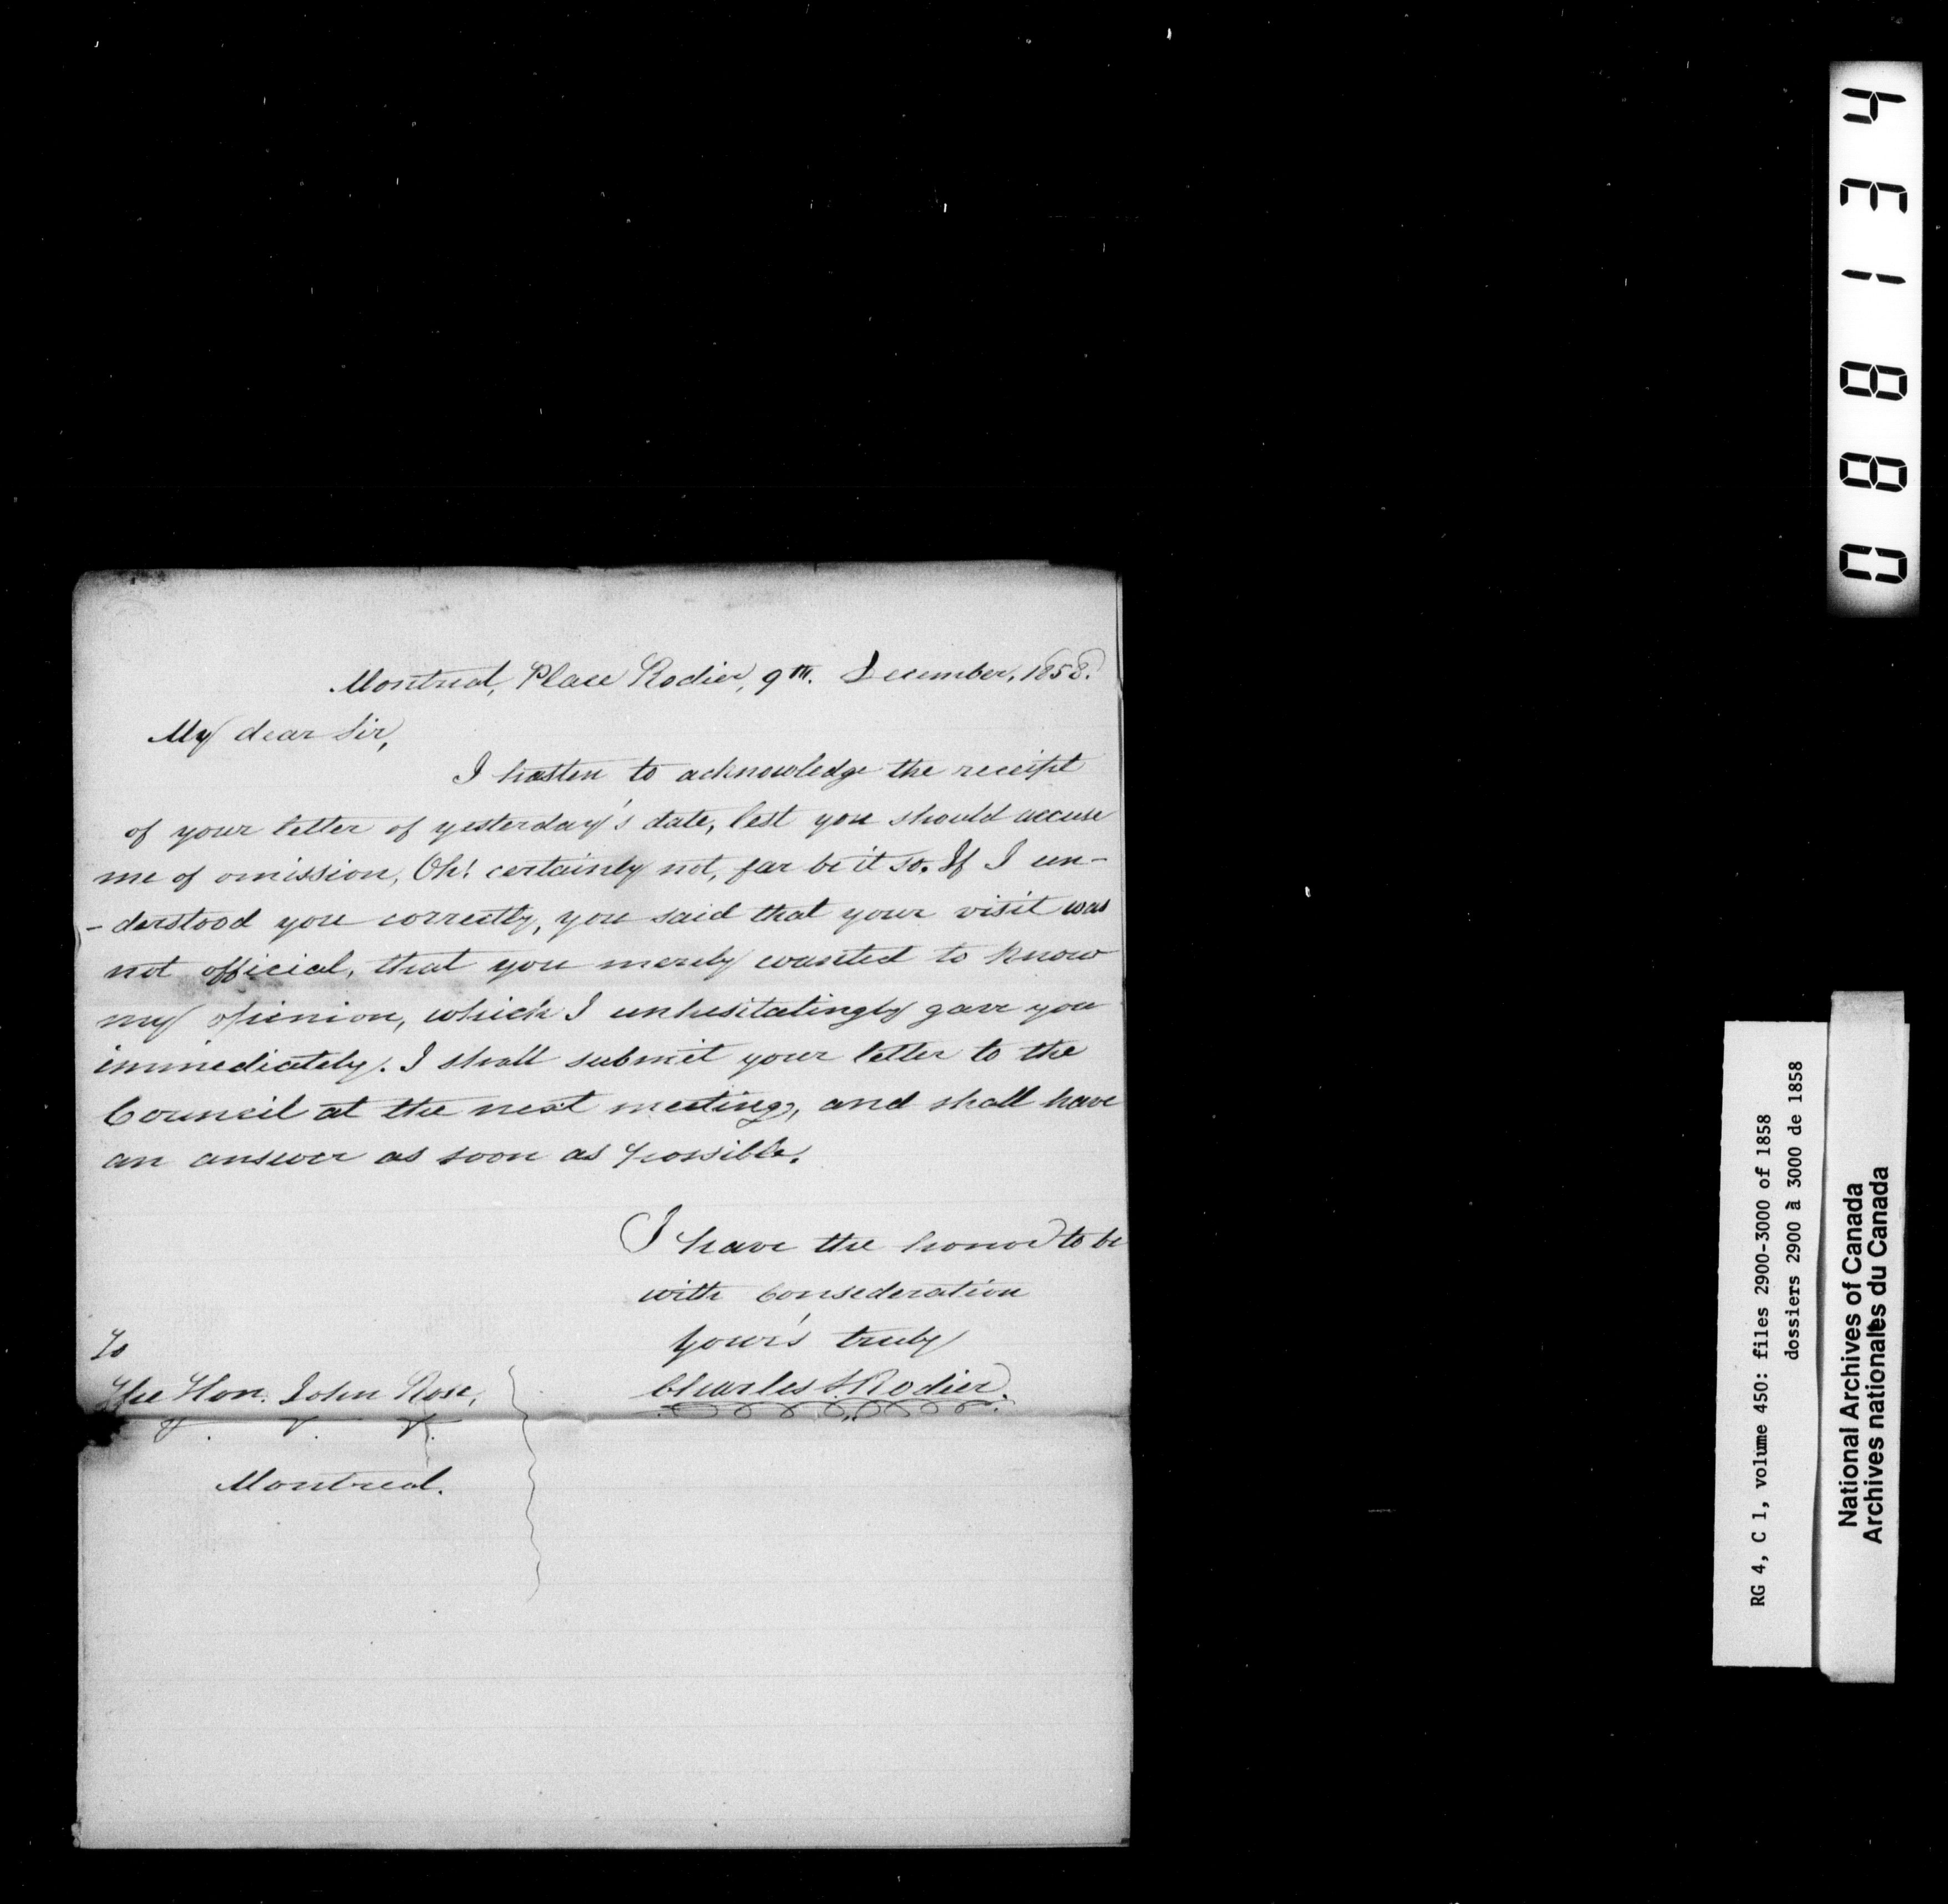 Montreal, Place Rodier, 9th. December, 1858.
My dear Sir,
I hasten to acknowledge the receipt
of your letter of yesterday's date, lest you should accuse
me of omission, Oh! certainly not, far be it so. If I un-
-derstood you correctly, you said that your visit was
not official, that you merely wanted to know
my opinion, which I unhesitatingly gave you
immediately. I shall submit your letter to the
Council at the next meeting, and shall have
an answer as soon as possible.
I have the honor to be
with Consederation
Your's truly
Charles S. Rodier.
To
The Hon. John Rose,
Montreal.
088134
RG 4, C 1, volume 450: files 2900-3000 of 1858
dossiers 2900 à 3000 de 1858
National Archives of Canada
Archives nationales du Canada